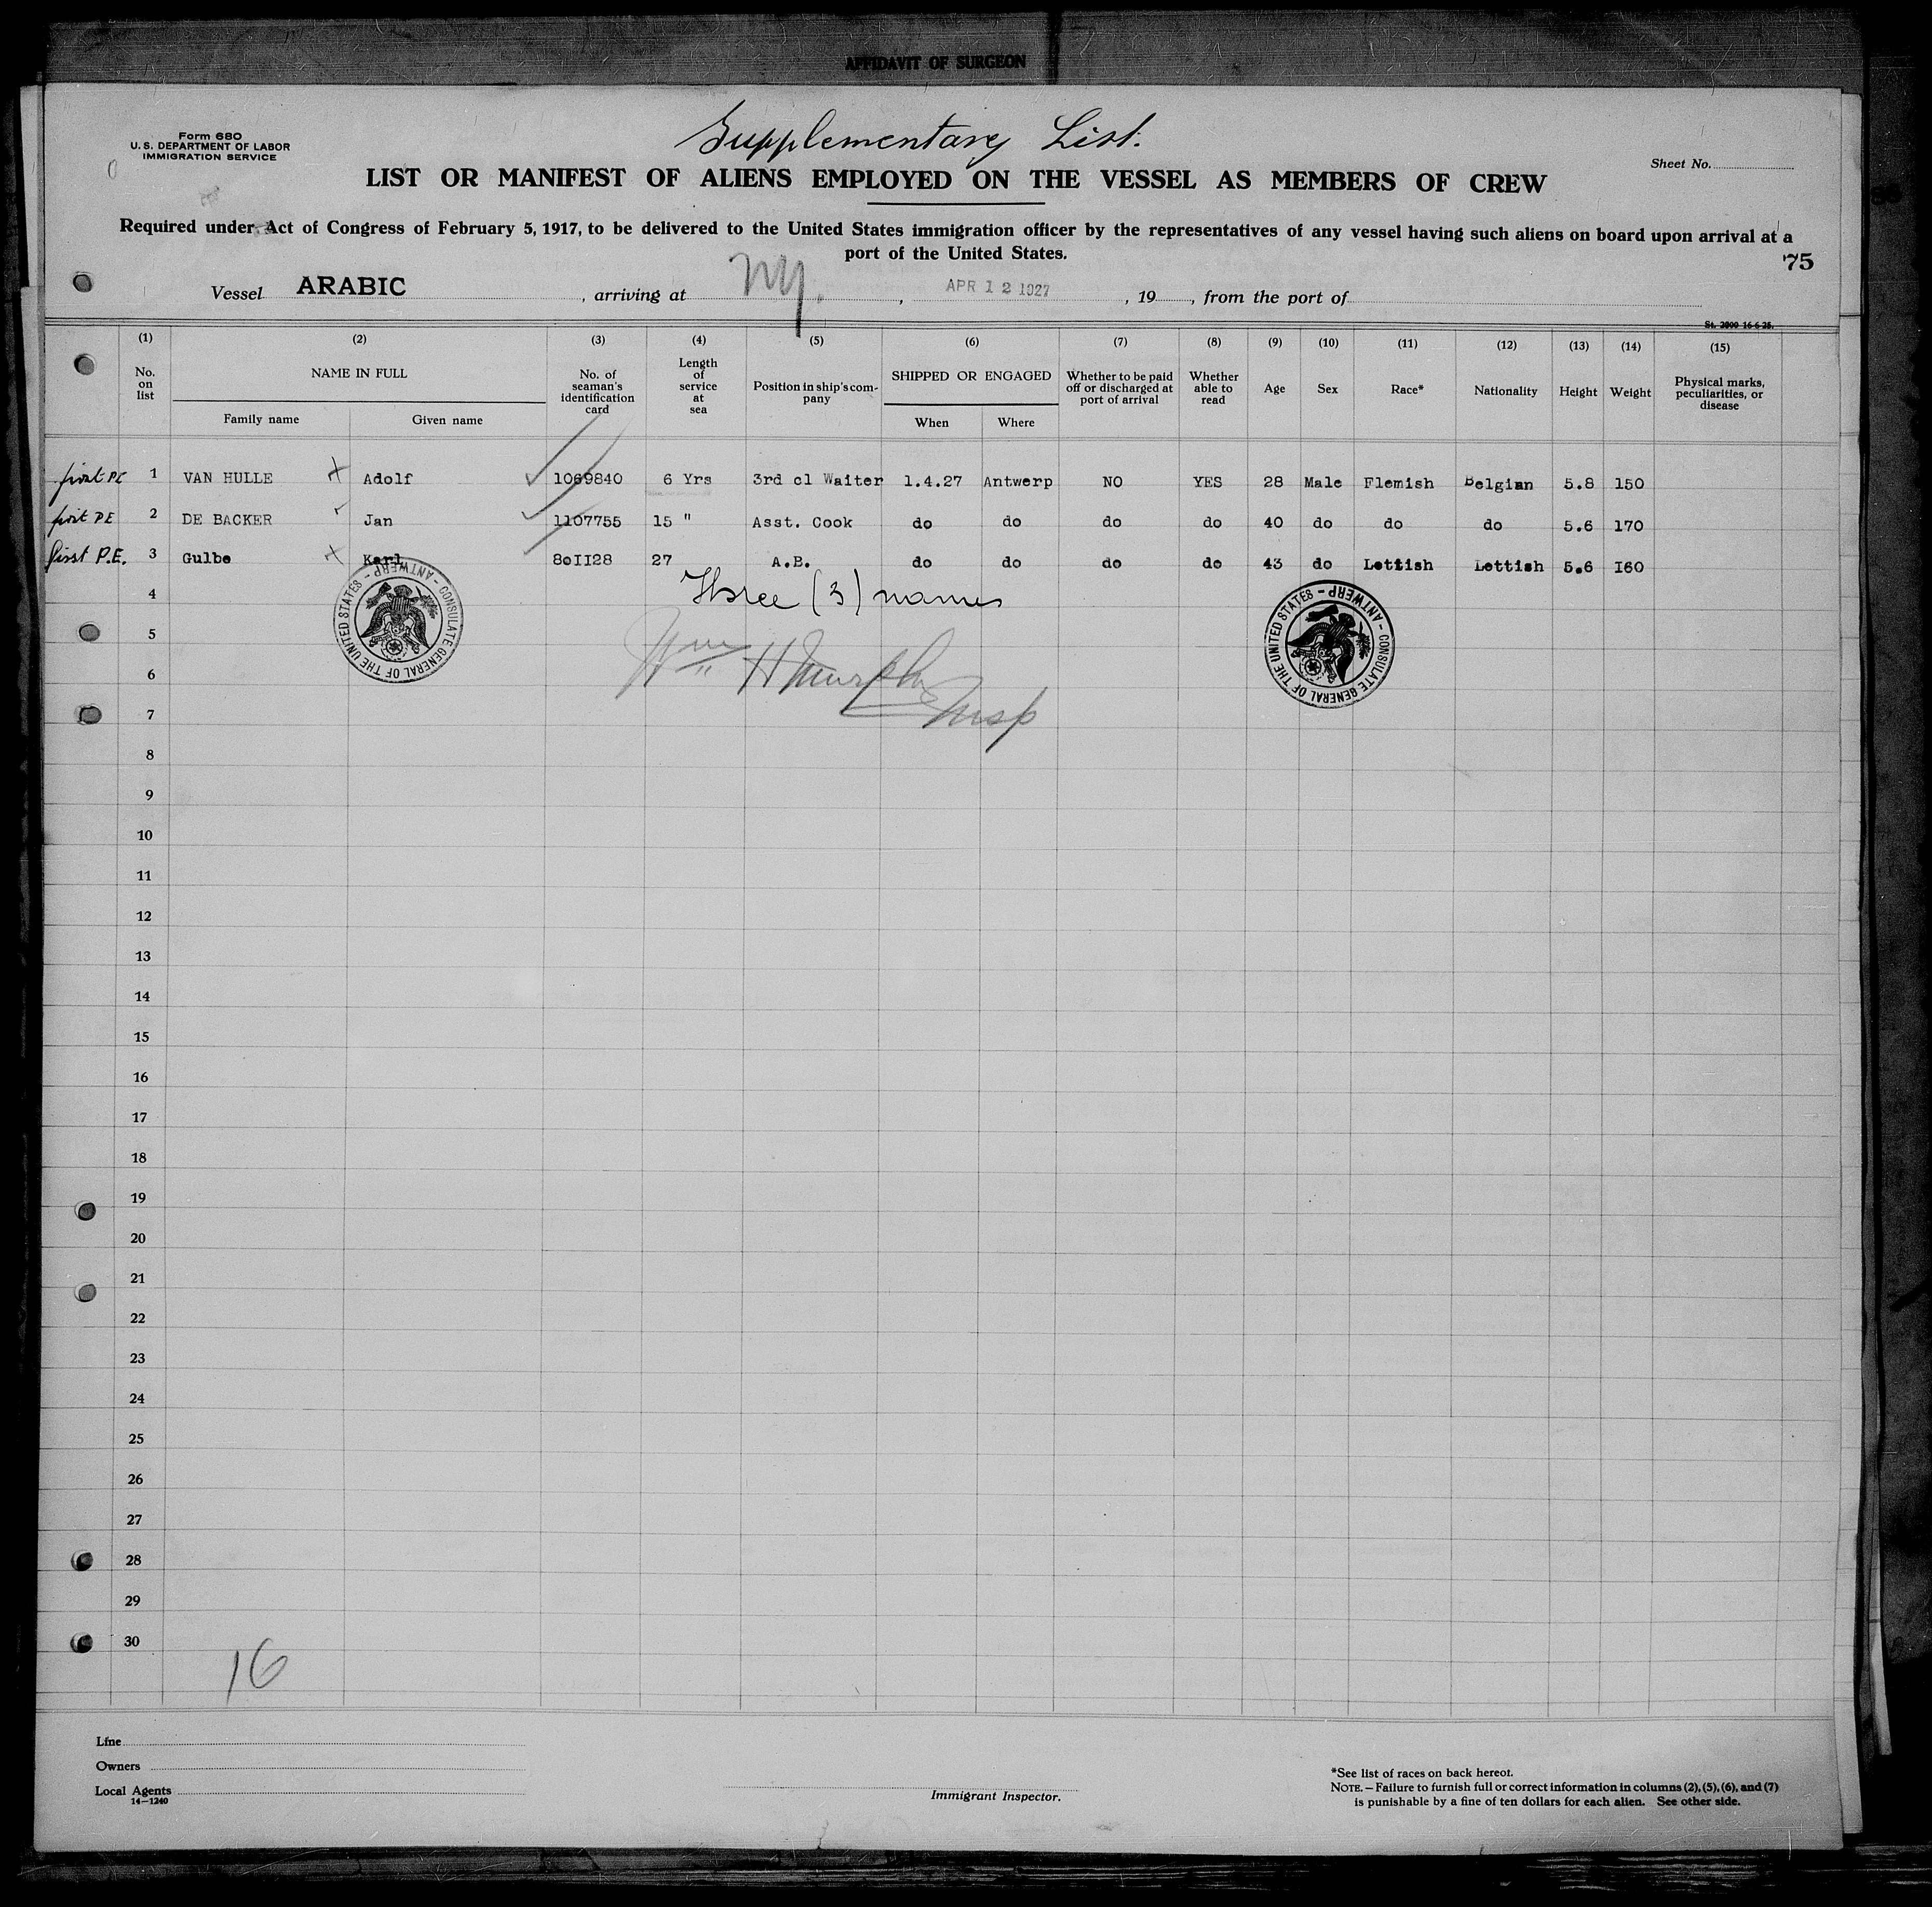 AFFIDAVIT OF SURGEON
Supplementary List.
Form 680
U. S. DEPARTMENT OF LABOR
IMMIGRATION SERVICE
Sheet No.
LIST OR MANIFEST OF ALIENS EMPLOYED ON THE VESSEL AS MEMBERS OF CREW
Required under Act of Congress of February 5, 1917, to be delivered to the United States immigration officer by the representatives of any vessel having such aliens on board upon arrival at a
port of the United States.
75
Vessel ARABIC, arriving at NY., APR 12 1927, 19, from the port of
St. 2000 16-6-25.
(1) (2) (3) (4) (5) (6) (7) (8) (9) (10) (11) (12) (13) (14) (15)
No. on list NAME IN FULL No. of seaman's identification card Length of service at sea Position in ship's company SHIPPED OR ENGAGED Whether to be paid off or discharged at port of arrival Whether able to read Age Sex Race* Nationality Height Weight Physical marks, peculiarities, or disease
Family name Given name When Where
first PE 1 VAN HULLE Adolf 1069840 6 Yrs 3rd cl Waiter 1.4.27 Antwerp NO YES 28 Male Flemish Belgian 5.8 150
first PE 2 DE BACKER Jan 1107755 15 " Asst. Cook do do do do 40 do do do 5.6 170
first P.E. 3 Gulbe Karl 80II28 27 A.B. do do do do 43 do Lettish Lettish 5.6 I60
4 Three (3) names
CONSULATE GENERAL OF THE UNITED STATES - ANTWERP -
CONSULATE GENERAL OF THE UNITED STATES - ANTWERP -
5
6 Wm H Murphy
7 Insp
8
9
10
11
12
13
14
15
16
17
18
19
20
21
22
23
24
25
26
27
28
29
30
16
Line
Owners
Local Agents
14—1240
Immigrant Inspector.
*See list of races on back hereof.
NOTE.—Failure to furnish full or correct information in columns (2), (5), (6), and (7)
is punishable by a fine of ten dollars for each alien. See other side.